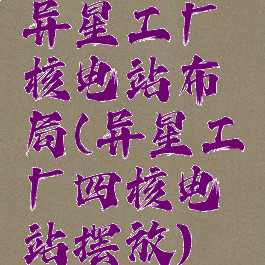 异星工厂
核电站布
局(异星工
厂四核电
站摆放)